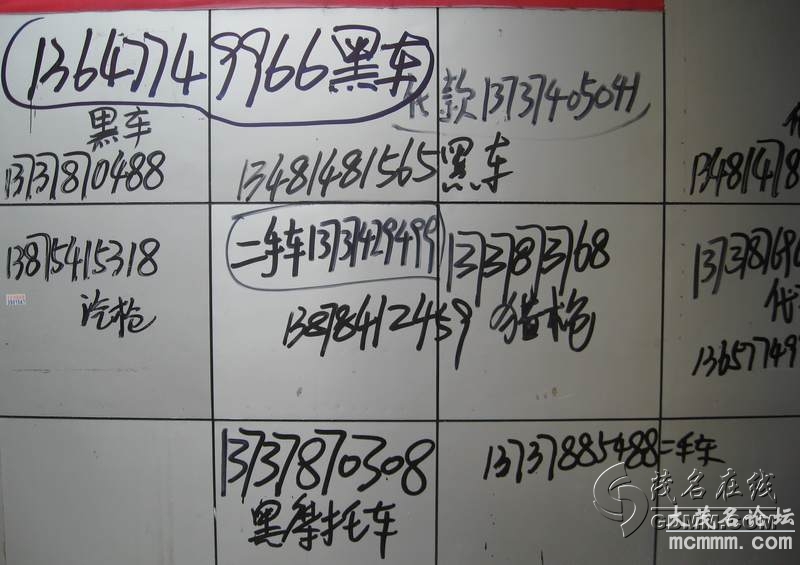 13647749966黑车
代款13737405041
黑车
13737870488
13481481565黑车
13481478
13875415318
汽枪
二手车13737429499
13878412459
1373873768
猎枪
13737869
代
13657749
13737870308
黑摩托车
13737885488二手车
茂名在线
GDMM.COM
大茂名论坛
mcmmm.com